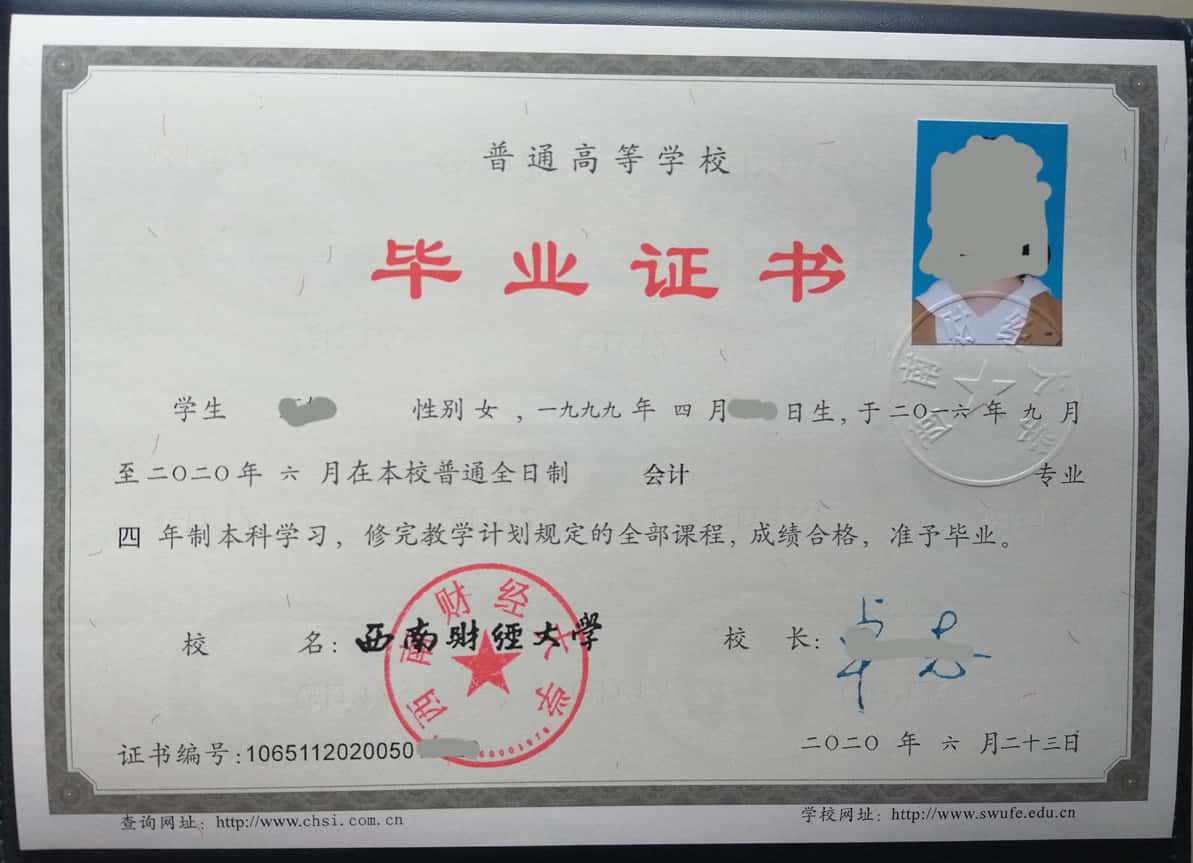 普通高等学校
毕业证书
学生 性别 女 , 一九九九 年 四 月 日生, 于 二〇一六 年 九 月
至 二〇二〇 年 六 月在本校普通全日制 会计 专业
四 年制本科学习, 修完教学计划规定的全部课程, 成绩合格, 准予毕业。
校 名: 西南财经大学 校 长:
西南财经大学
证书编号: 1065112020050
二〇二〇 年 六 月二十三日
查询网址: http://www.chsi.com.cn
学校网址: http://www.swufe.edu.cn